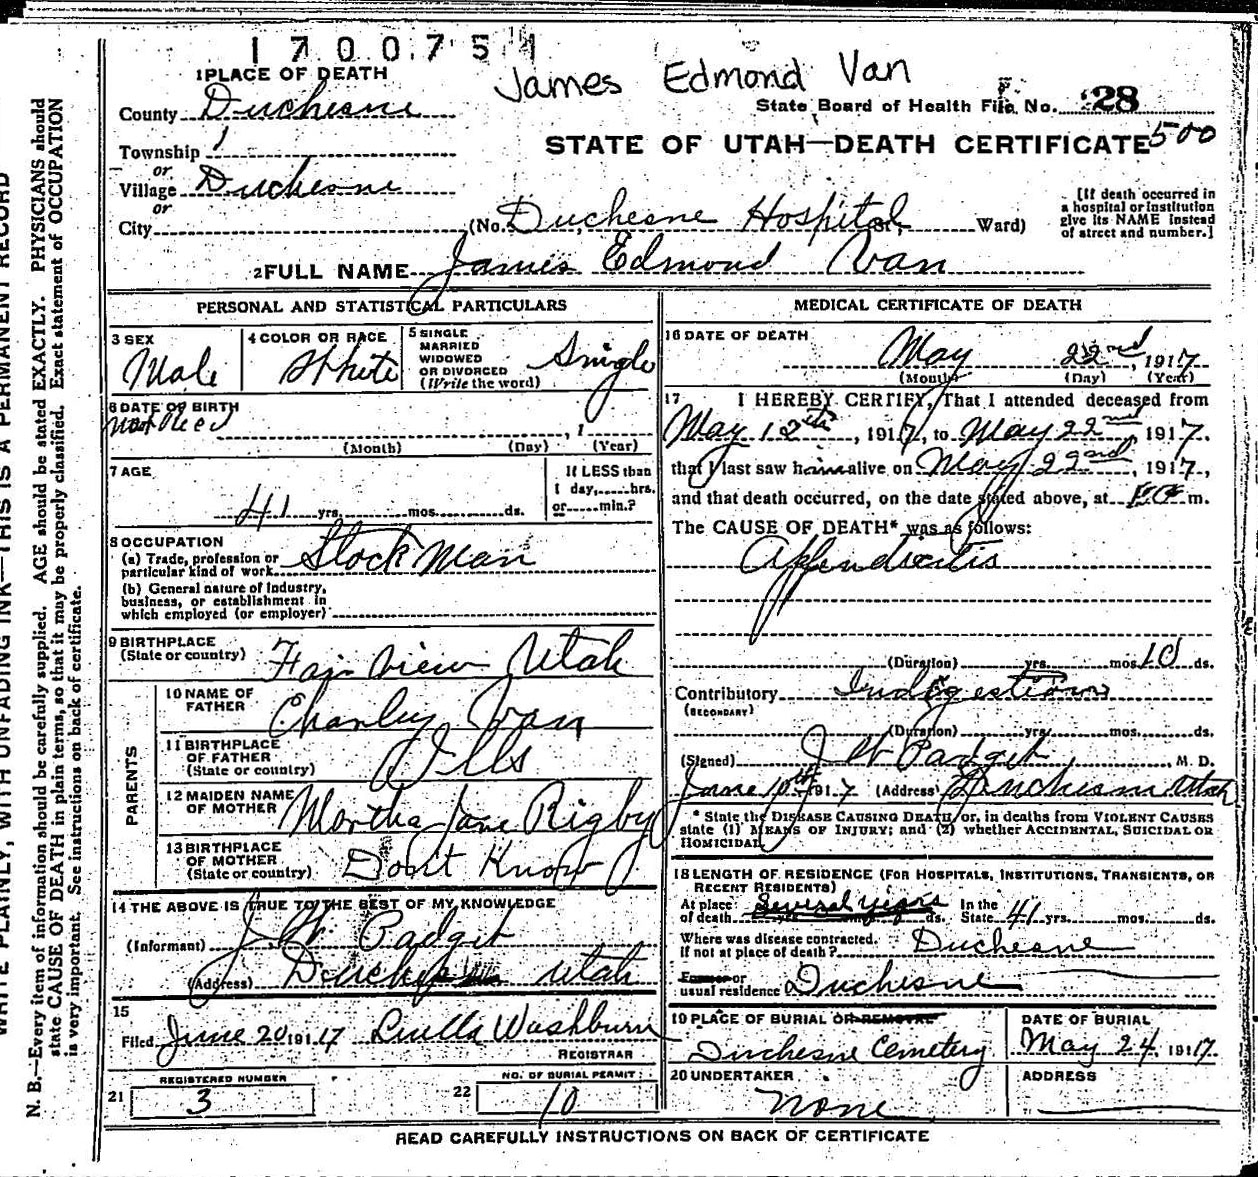 1700754
James Edmond Van
1 PLACE OF DEATH
County Duchesne
State Board of Health File No. 28
Township 1
STATE OF UTAH—DEATH CERTIFICATE 500
or
Village Duchesne
or
City (No. Duchesne Hospital St., Ward)
[If death occurred in a hospital or institution give its NAME instead of street and number.]
2 FULL NAME James Edmond Van
PERSONAL AND STATISTICAL PARTICULARS
3 SEX
Male
4 COLOR OR RACE
White
5 SINGLE
MARRIED
WIDOWED
OR DIVORCED
(Write the word)
Single
6 DATE OF BIRTH
(Month) (Day) , 1 (Year)
7 AGE
41 yrs. mos. ds.
If LESS than
1 day, hrs.
or min.?
8 OCCUPATION
(a) Trade, profession or
particular kind of work Stock Man
(b) General nature of industry,
business, or establishment in
which employed (or employer)
9 BIRTHPLACE
(State or country) Fair view Utah
PARENTS
10 NAME OF
FATHER Charley Van
11 BIRTHPLACE
OF FATHER
(State or country) Ills
12 MAIDEN NAME
OF MOTHER Martha Jane Rigby
13 BIRTHPLACE
OF MOTHER
(State or country) Don't Know
14 THE ABOVE IS TRUE TO THE BEST OF MY KNOWLEDGE
(Informant) J W Padget
(Address) Duchesne Utah
15
Filed June 20 1917 Luella Washburn
REGISTRAR
REGISTERED NUMBER
21 3
NO. OF BURIAL PERMIT
22 10
MEDICAL CERTIFICATE OF DEATH
16 DATE OF DEATH
May 22nd, 1917
(Month) (Day) (Year)
17 I HEREBY CERTIFY, That I attended deceased from
May 12th, 1917, to May 22nd 1917.
that I last saw him alive on May 22nd, 1917,
and that death occurred, on the date stated above, at m.
The CAUSE OF DEATH* was as follows:
Appendicitis
(Duration) yrs. mos. 10 ds.
Contributory Indigestion
(SECONDARY)
(Duration) yrs. mos. ds.
(Signed) J W Padget, M. D.
June 10th 1917 (Address) Duchesne Utah
* State the DISEASE CAUSING DEATH, or, in deaths from VIOLENT CAUSES
state (1) MEANS OF INJURY; and (2) whether ACCIDENTAL, SUICIDAL OR
HOMICIDAL
18 LENGTH OF RESIDENCE (FOR HOSPITALS, INSTITUTIONS, TRANSIENTS, OR
RECENT RESIDENTS)
At place
of death Several years yrs. ds. In the State 41 yrs. mos. ds.
Where was disease contracted,
if not at place of death? Duchesne
Former or
usual residence Duchesne
19 PLACE OF BURIAL OR REMOVAL
Duchesne Cemetery
DATE OF BURIAL
May 24, 1917.
20 UNDERTAKER
None
ADDRESS
READ CAREFULLY INSTRUCTIONS ON BACK OF CERTIFICATE
WRITE PLAINLY, WITH UNFADING INK—THIS IS A PERMANENT RECORD
N. B.—Every item of information should be carefully supplied. AGE should be stated EXACTLY. PHYSICIANS should
state CAUSE OF DEATH in plain terms, so that it may be properly classified. Exact statement of OCCUPATION
is very important. See instructions on back of certificate.